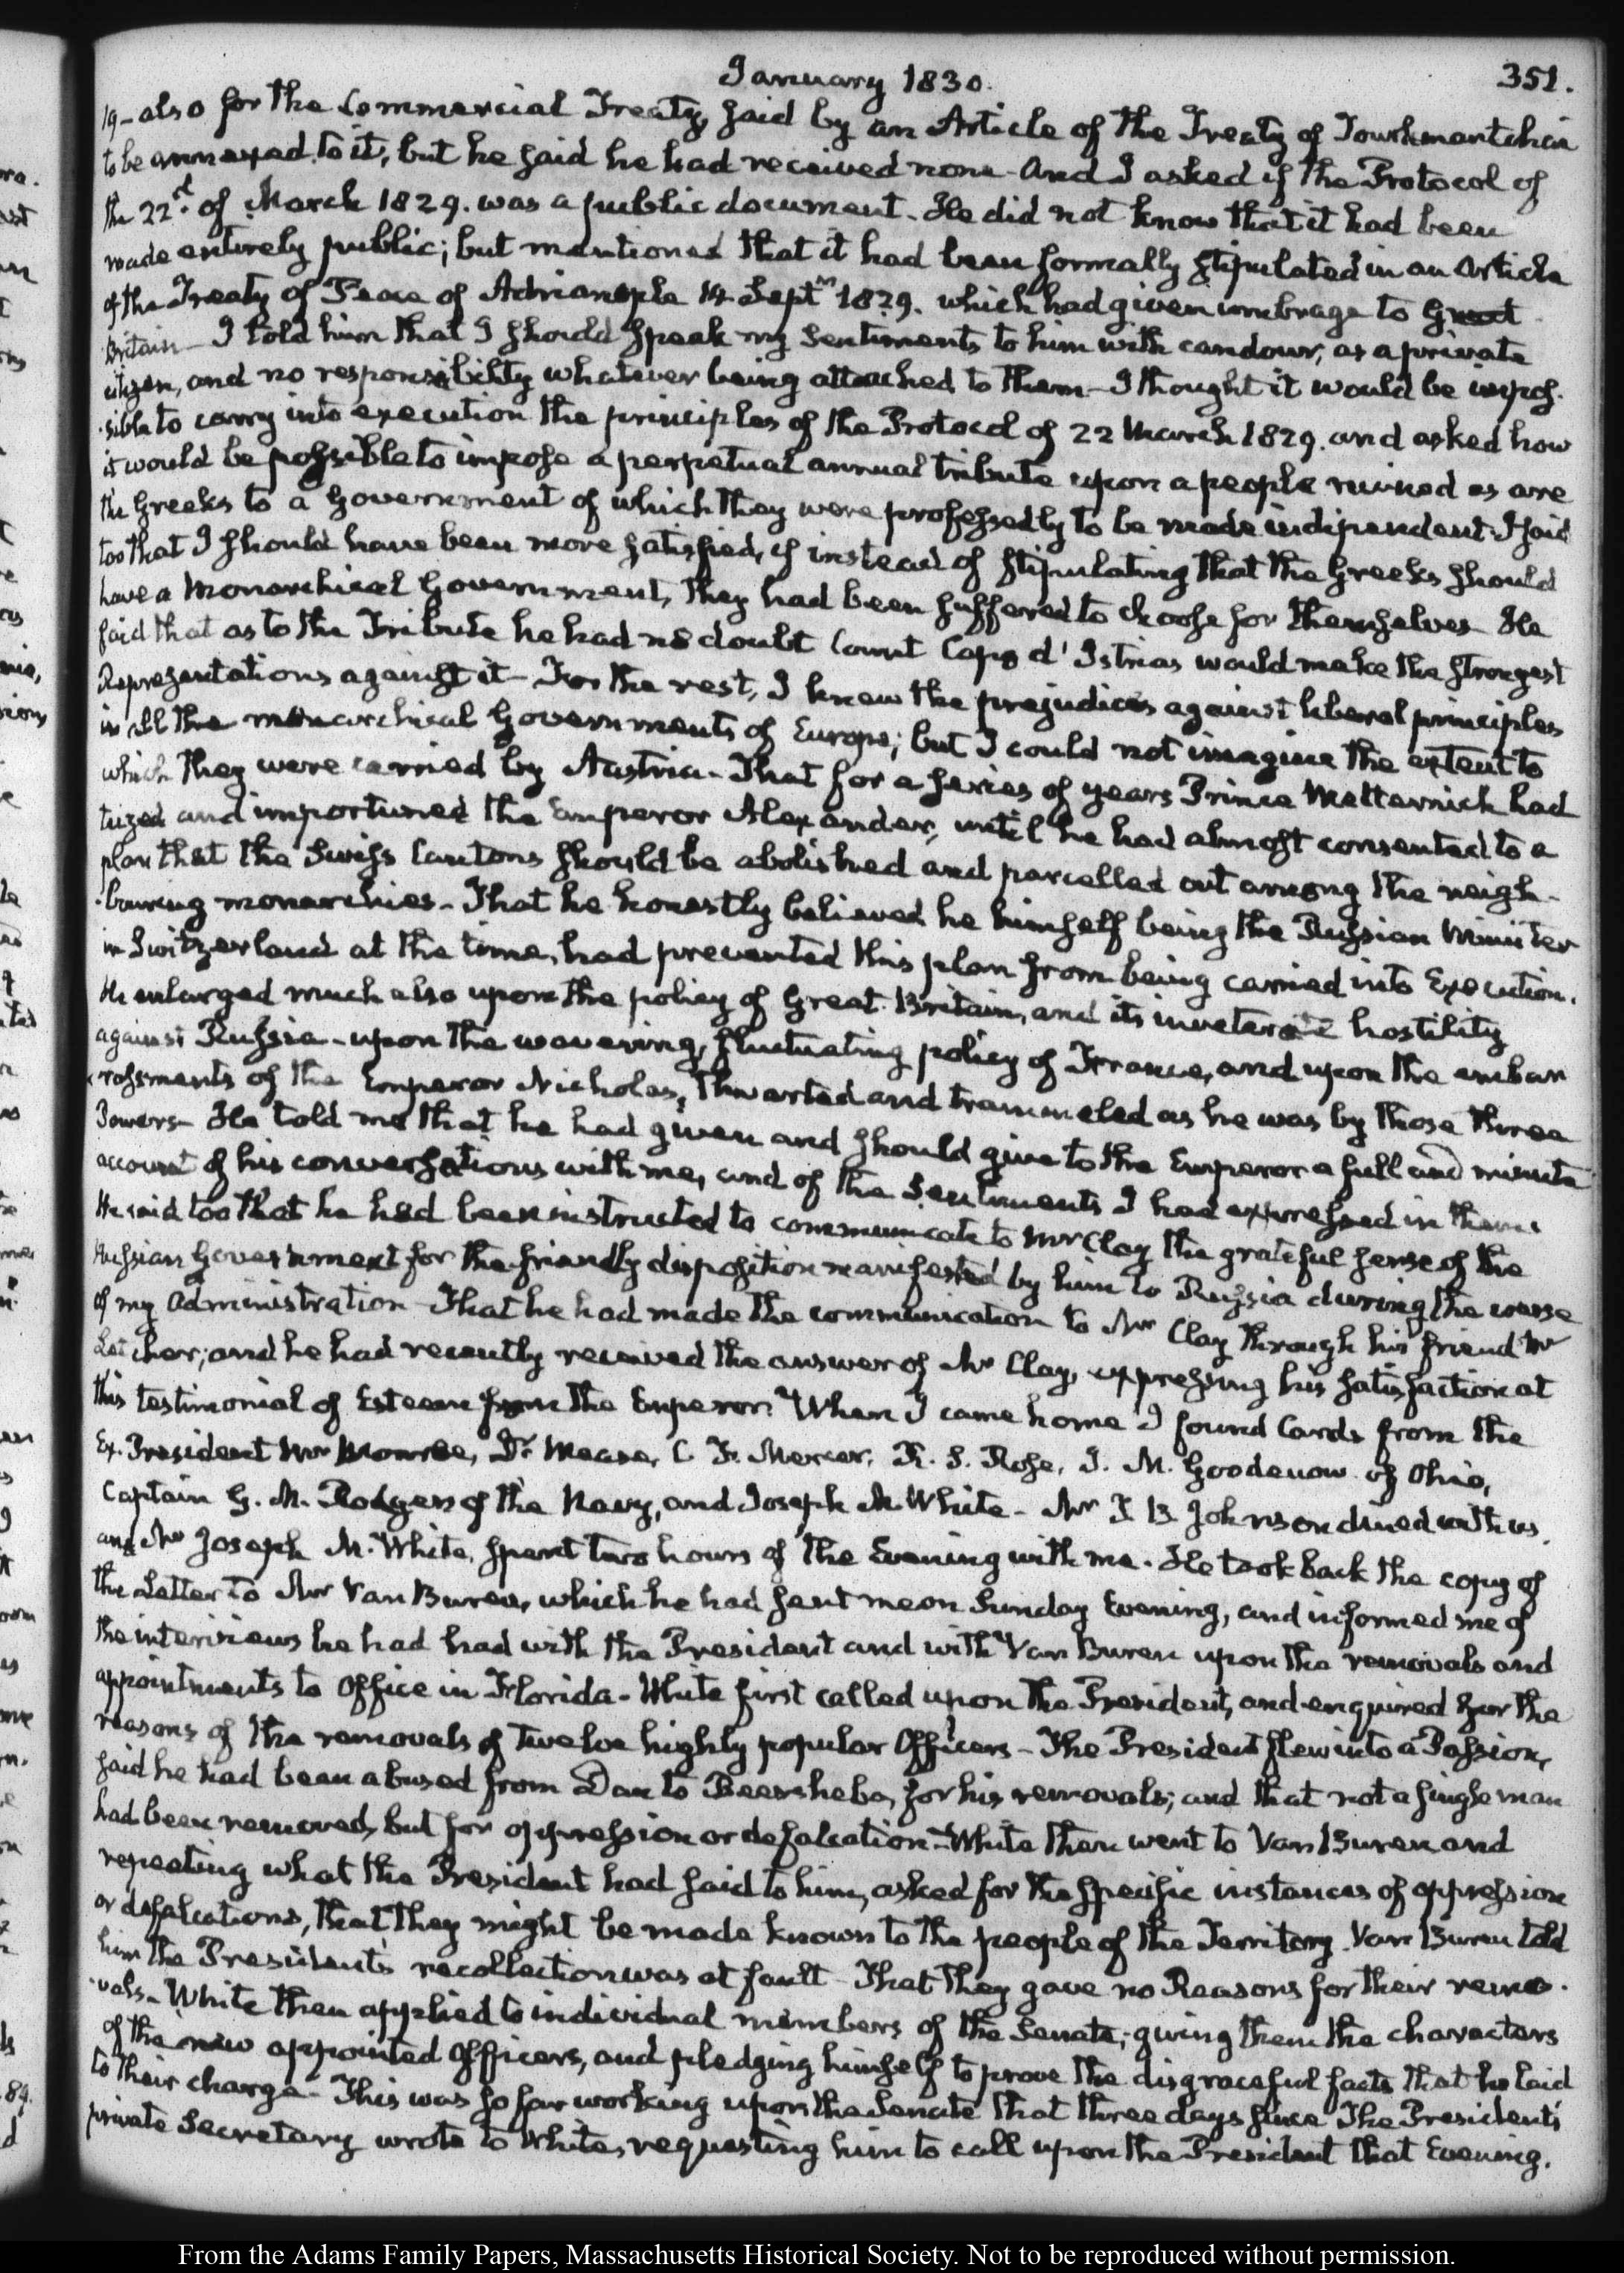 January 1830.
351.
19 - also for the Commercial Treaty, said by an Article of the Treaty of Tourkmantchai
to be annexed to it, but he said he had received none - And I asked if the Protocol of
the 22d. of March 1829. was a public document - He did not know that it had been
made entirely public; but mentioned that it had been formally stipulated in an Article
of the Treaty of Peace of Adrianople 14 Septr 1829. which had given umbrage to Great
Britain - I told him that I should speak my Sentiments to him with candour, as a private
citizen, and no responsibility whatever being attached to them - I thought it would be impos-
-sible to carry into execution the principles of the Protocol of 22 March 1829. and asked how
it would be possible to impose a perpetual annual tribute upon a people ruined as are
the Greeks to a Government of which they were professedly to be made independent. I said
too that I should have been more satisfied, if instead of stipulating that the Greeks should
have a Monarchical Government, they had been suffered to choose for themselves - He
said that as to the Tribute he had no doubt Count Capo d'Istrias would make the strongest
Representations against it - For the rest, I knew the prejudices against liberal principles
in all the monarchical Governments of Europe; but I could not imagine the extent to
which they were carried by Austria - That for a series of years Prince Metternich had
teized and importuned the Emperor Alexander, until he had almost consented to a
plan that the Swiss Cantons should be abolished and parcelled out among the neigh-
-bouring monarchies - That he honestly believed he himself being the Russian Minister
in Switzerland at the time, had prevented this plan from being carried into Execution.
He enlarged much also upon the policy of Great Britain, and its inveterate hostility
against Russia - upon the wavering, fluctuating policy of France, and upon the embar
-rassments of the Emperor Nicholas, thwarted and trammeled as he was by those three
Powers - He told me that he had given and should give to the Emperor a full and minute
account of his conversations with me, and of the Sentiments I had expressed in them.
He said too that he had been instructed to communicate to Mr Clay the grateful sense of the
Russian Government for the friendly disposition manifested by him to Russia during the course
of my Administration - That he had made the communication to Mr Clay through his friend Mr
Letcher; and he had recently received the answer of Mr Clay, expressing his satisfaction at
this testimonial of Esteem from the Emperor. When I came home I found Cards from the
Ex-President Mr Monroe, Dr. Mease, C. F. Mercer, R. S. Rose, J. M. Goodenow of Ohio,
Captain G. M. Rodgers of the Navy, and Joseph M. White - Mr T B Johnson dined with us,
and Mr Joseph M. White, spent two hours of the Evening with me. He took back the copy of
the Letter to Mr Van Buren, which he had sent me on Sunday Evening, and informed me of
the interviews he had had with the President and with Van Buren upon the removals and
appointments to Office in Florida - White first called upon the President, and enquired for the
reasons of the removals of twelve highly popular Officers - The President flew into a Passion,
said he had been abused from Dan to Beersheba, for his removals; and that not a single man
had been removed, but for oppression or defalcation - White then went to Van Buren and
repeating what the President had said to him, asked for the specific instances of oppression
or defalcations, that they might be made known to the people of the Territory. Van Buren told
him the President's recollection was at fault - That they gave no Reasons for their remo-
-vals - White then applied to individual members of the Senate; giving them the characters
of the new appointed Officers, and pledging himself to prove the disgraceful facts that he laid
to their charge - This was so far working upon the Senate that three days since The President's
private Secretary wrote to White, requesting him to call upon the President that Evening.
From the Adams Family Papers, Massachusetts Historical Society. Not to be reproduced without permission.